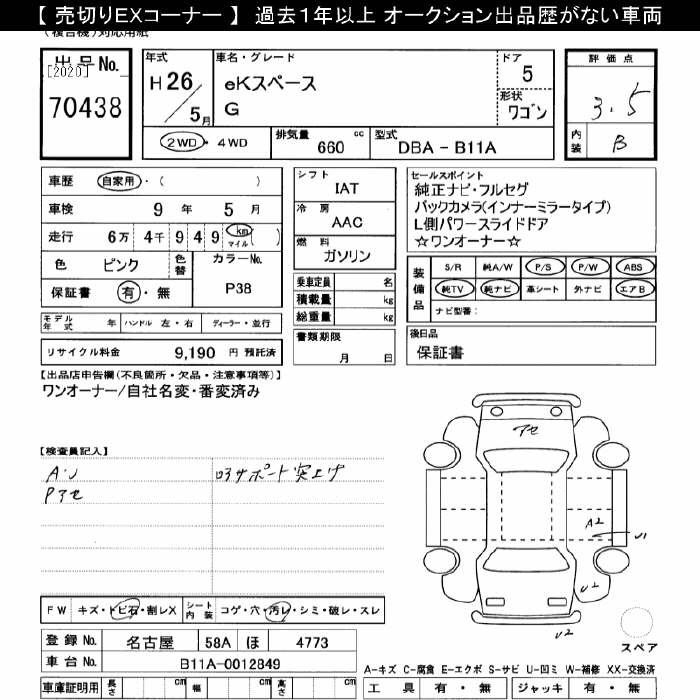 【 売切りEXコーナー 】 過去１年以上 オークション出品歴がない車両
(複合機)対応用紙
出品No. [2020] 70438
年式 H 26 / 5 月
車名・グレード eKスペース G
ドア 5
形状 ワゴン
評価点 3.5
内装 B
2WD・4WD
排気量 660 cc
型式 DBA - B11A
車歴 自家用・( )
車検 9 年 5 月
走行 6万 4千 9 4 9 km マイル ( )
色 ピンク 色替 カラーNo. P38
保証書 有・無
モデル年式 年 ハンドル 左・右 ディーラー・並行
リサイクル料金 9,190 円 預託済
シフト IAT
冷房 AAC
燃料 ガソリン
乗車定員 名
積載量 kg
総重量 kg
書類期限 月 日
セールスポイント
純正ナビ・フルセグ
バックカメラ(インナーミラータイプ)
L側パワースライドドア
☆ワンオーナー☆
装備品 S/R 純A/W P/S P/W ABS
純TV 純ナビ 革シート 外ナビ エアB
ナビ型番:
後日品
保証書
【出品店申告欄(不良箇所・欠品・注意事項等)】
ワンオーナー/自社名変・番変済み
【検査員記入】
A・U
Pアセ
ロアサポート突上げ
アセ
A2
U1
U2
U2
スペア
FW キズ・トビ石・割レX シート内装 コゲ・穴・汚レ・シミ・破レ・スレ
登録No. 名古屋 58A ほ 4773
車台No. B11A-0012849
車庫証明用 長さ cm 幅 cm 高さ cm
A-キズ C-腐食 E-エクボ S-サビ U-凹ミ W-補修 XX-交換済
工具 有・無 ジャッキ 有・無